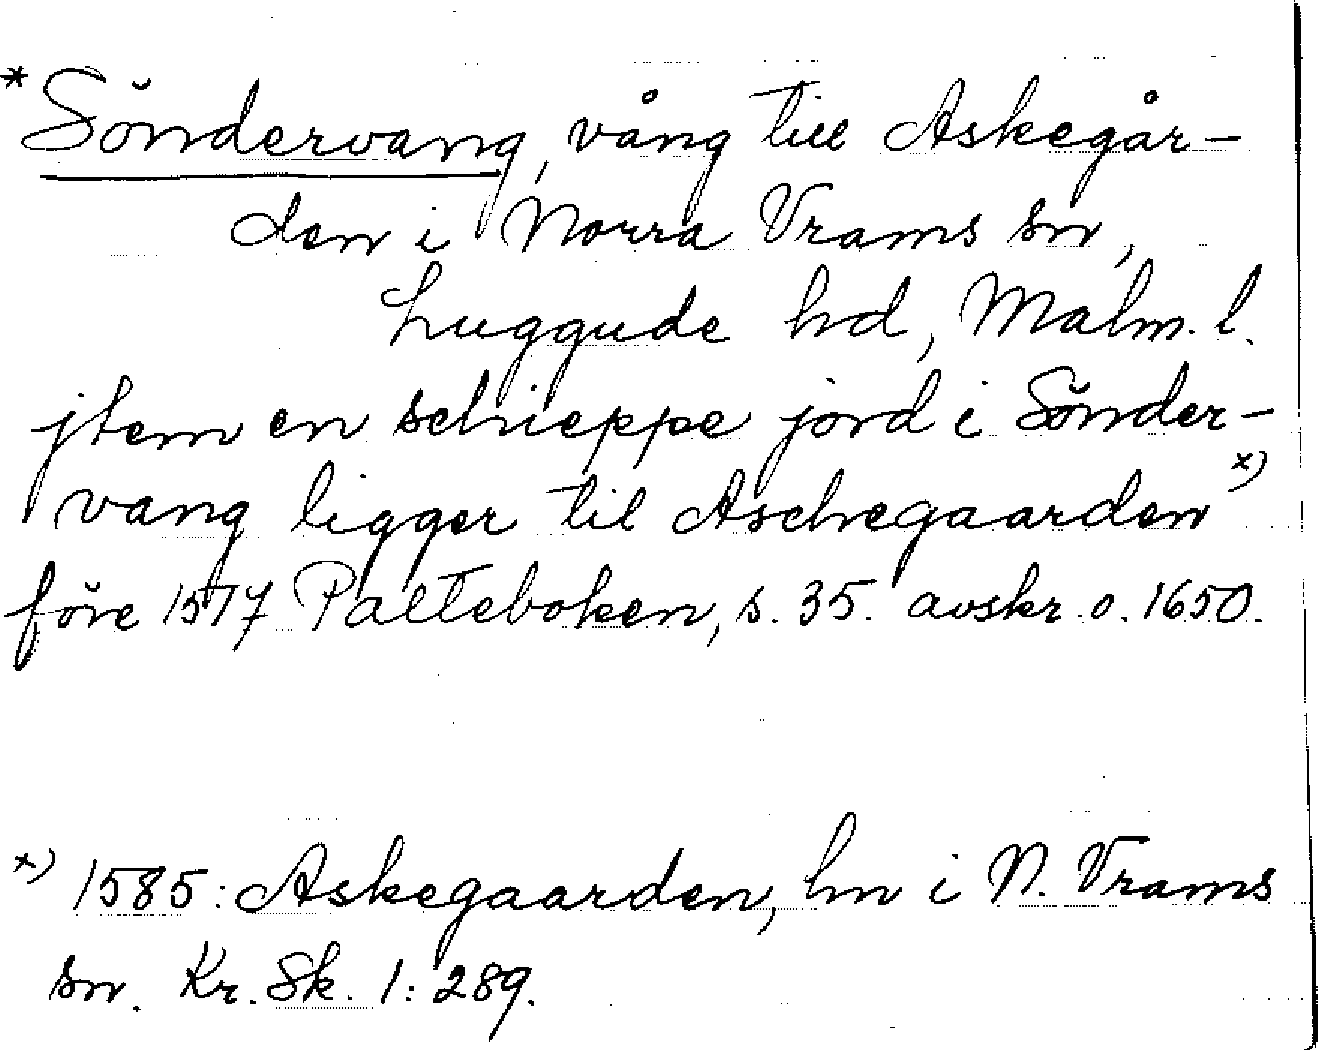 *Söndervang, vång till Askegår-
den i Norra Vrams sn,
Luggude hd, Malm. l.
jtem en schieppe jord i Sönder-
vang ligger til Aschegaarden x)
före 1577 Palteboken, s. 35. avskr. o. 1650.
x) 1585: Askegaarden, hn i N. Vrams
sn. Kr. Sk. 1: 289.